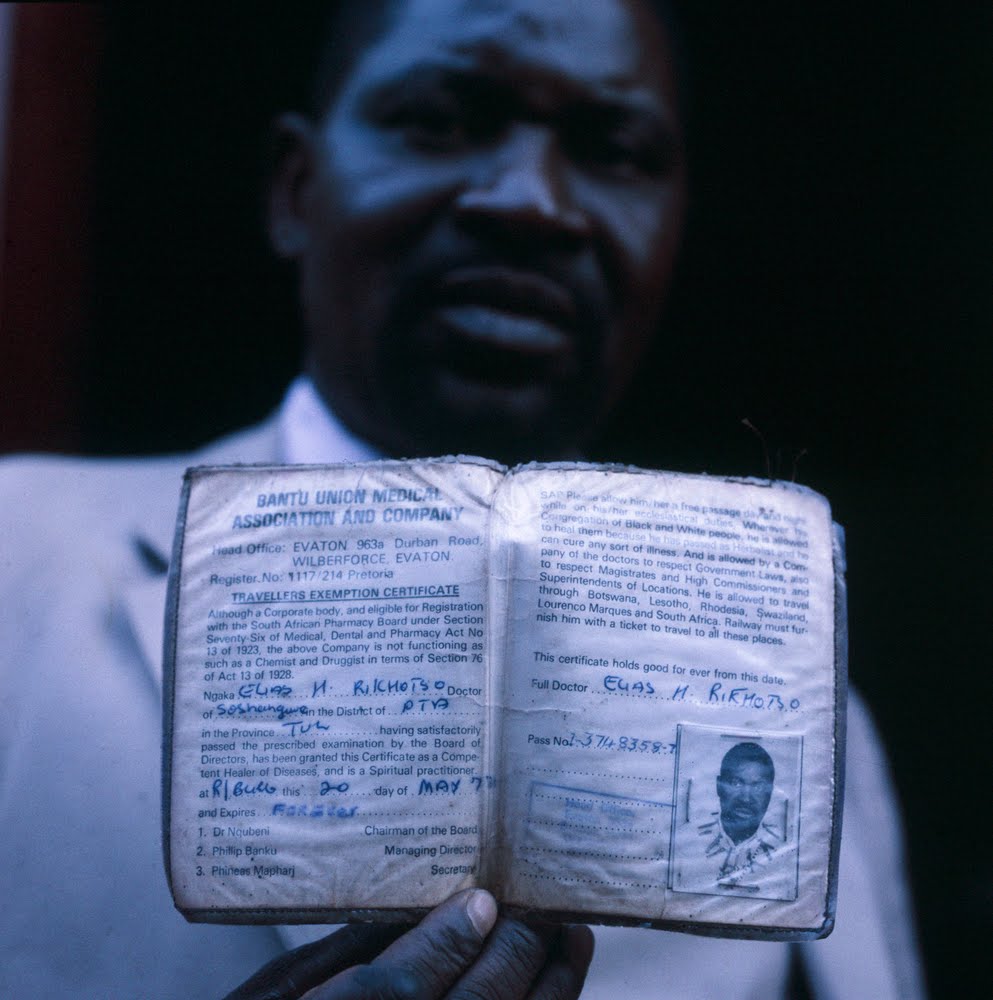 BANTU UNION MEDICAL
ASSOCIATION AND COMPANY
Head Office: EVATON 963a Durban Road,
WILBERFORCE, EVATON.
Register.No: 1117/214 Pretoria
TRAVELLERS EXEMPTION CERTIFICATE
Although a Corporate body, and eligible for Registration
with the South African Pharmacy Board under Section
Seventy-Six of Medical, Dental and Pharmacy Act No
13 of 1923, the above Company is not functioning as
such as a Chemist and Druggist in terms of Section 76
of Act 13 of 1928.
Ngaka ELIAS M. RIKHOTSO Doctor
of Soshanguve in the District of PTA
in the Province TVL having satisfactorily
passed the prescribed examination by the Board of
Directors, has been granted this Certificate as a Compe-
tent Healer of Diseases, and is a Spiritual practitioner.
at this 20 day of MAY
and Expires FOREVER
1. Dr Nqubeni Chairman of the Board
2. Phillip Banku Managing Director
3. Phineas Mapharj Secretary
SAP Please allow him/her a free passage day and night
while on his/her ecclesiastical duties. Wherever
Congregation of Black and White people, he is allowed
to heal them because he has passed as Herbalist and he
can cure any sort of illness. And is allowed by a Com-
pany of the doctors to respect Government Laws, also
to respect Magistrates and High Commissioners and
Superintendents of Locations. He is allowed to travel
through Botswana, Lesotho, Rhodesia, Swaziland,
Lourenco Marques and South Africa. Railway must fur-
nish him with a ticket to travel to all these places.
This certificate holds good for ever from this date.
Full Doctor ELIAS M. RIKHOTSO
Pass No 1-3748358-7